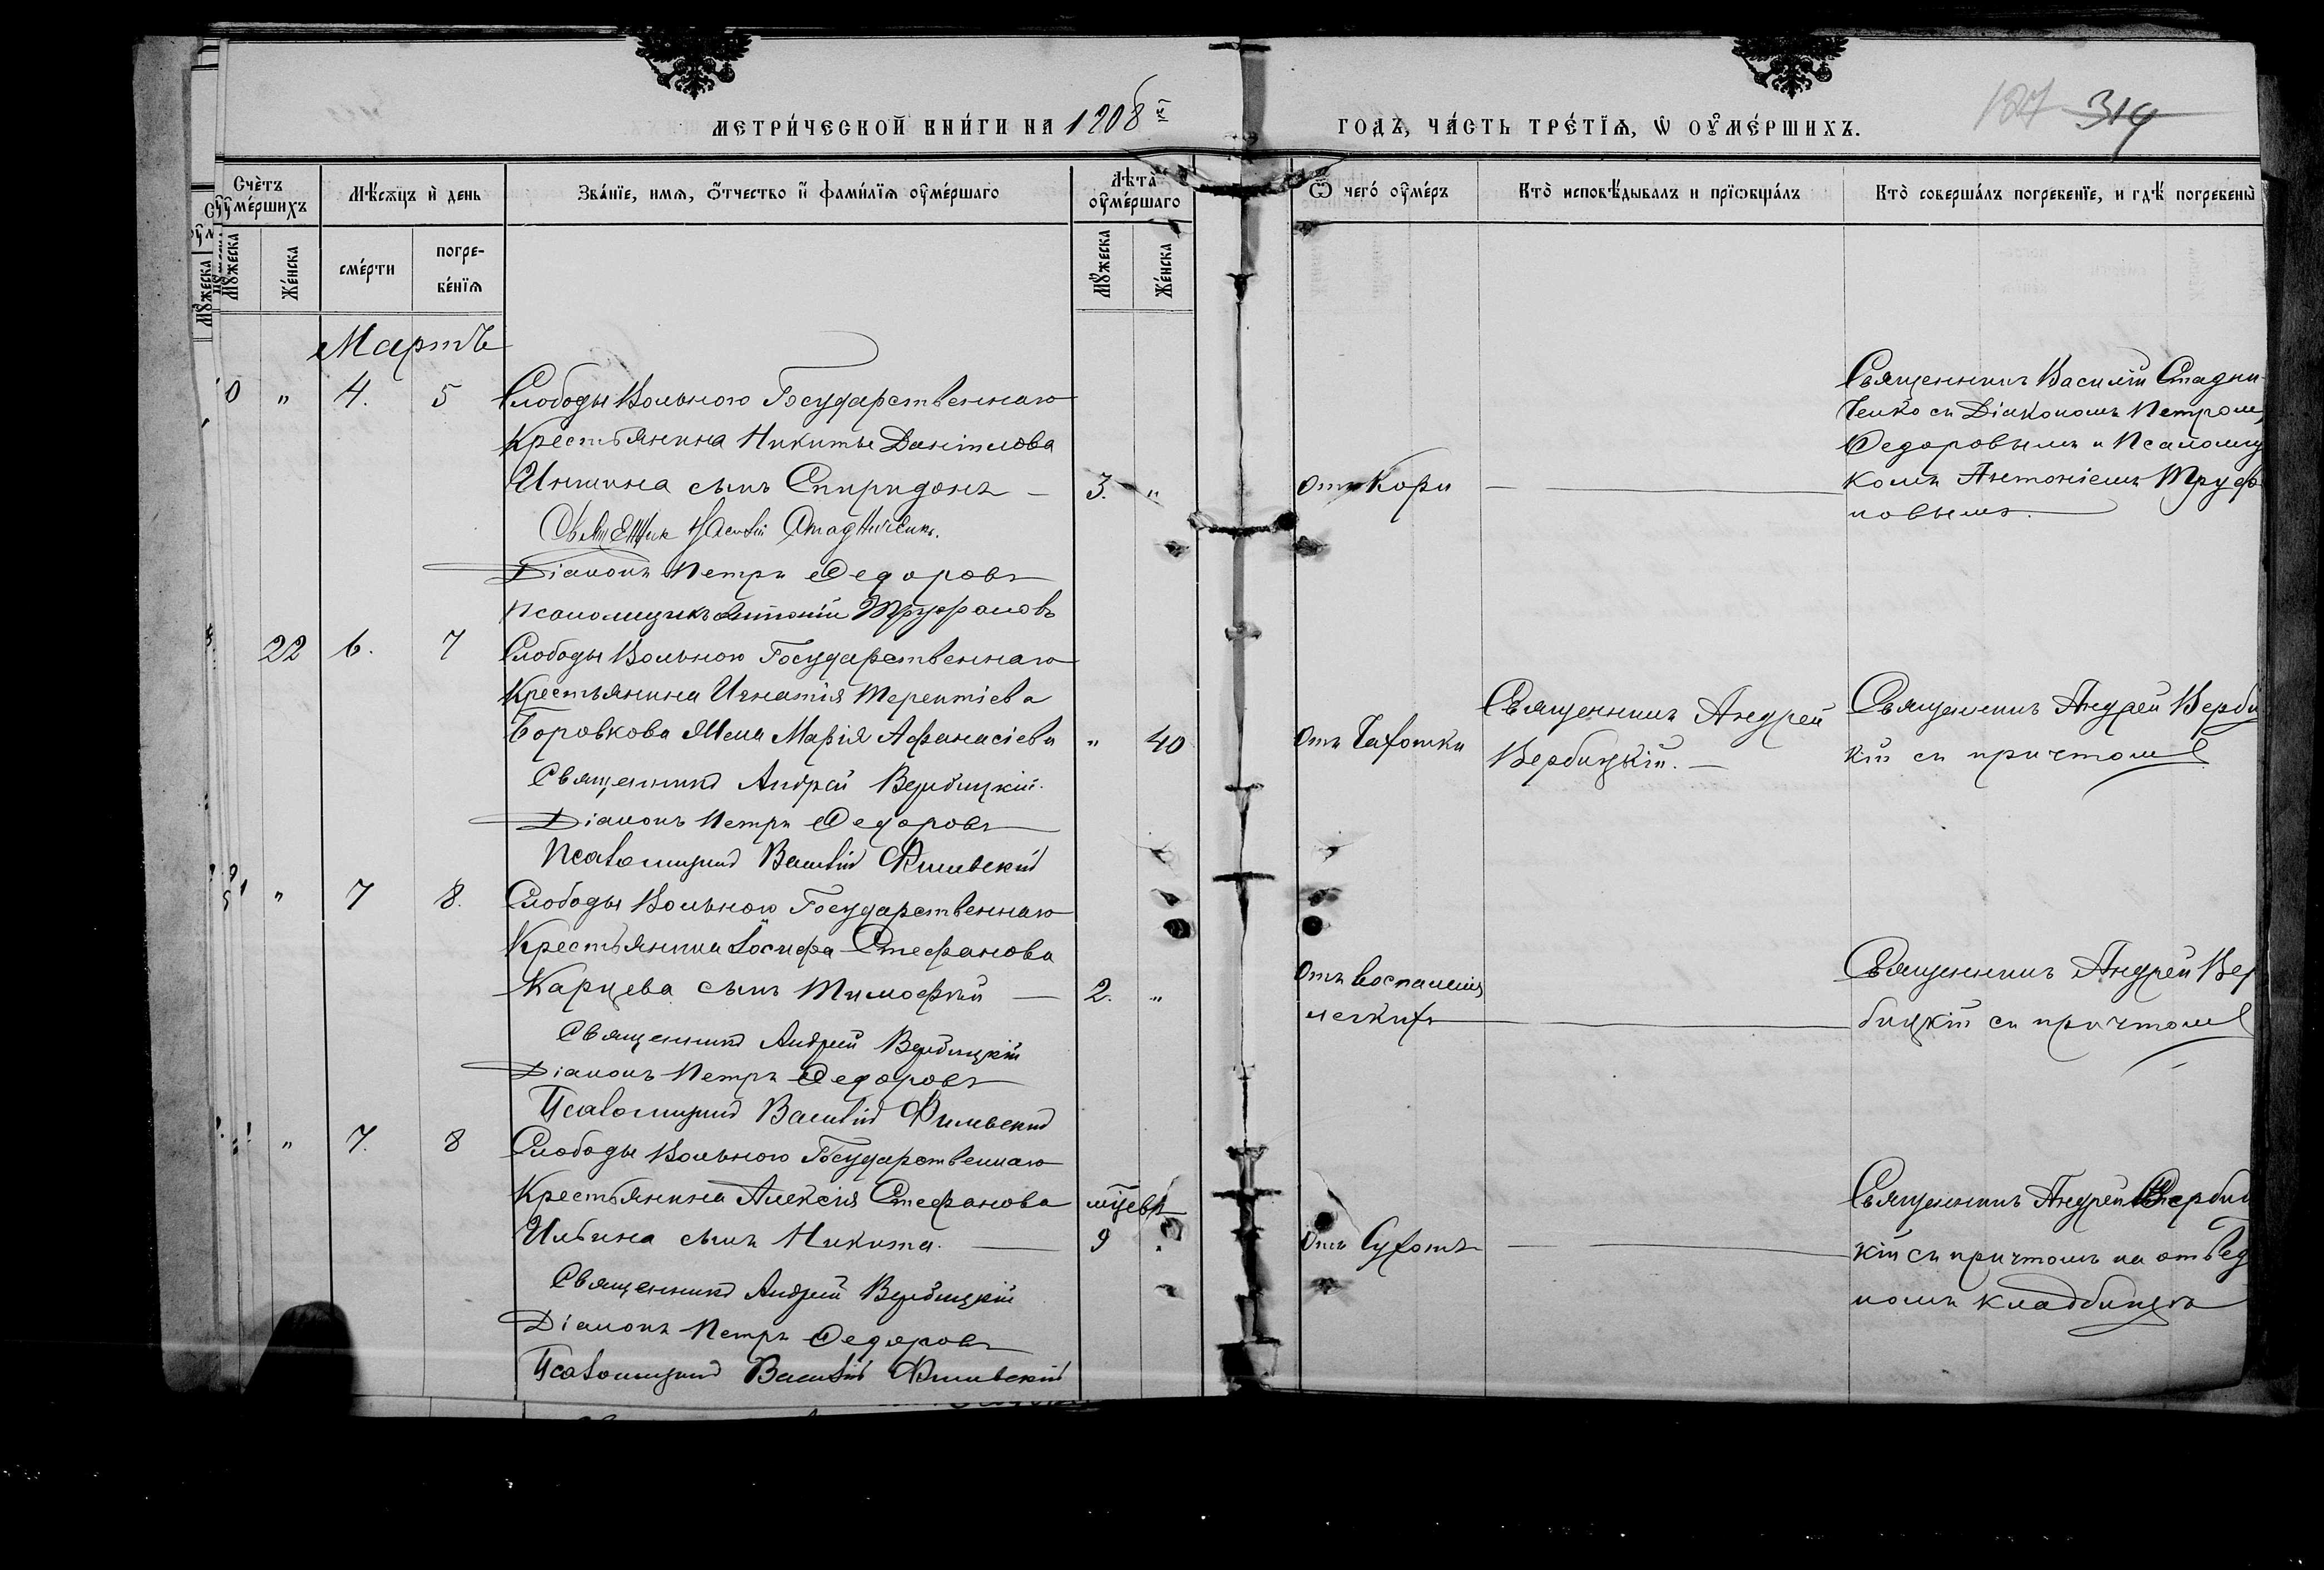 МЕТРИ́ЧЕСКОЙ КНИ́ГИ НА 1908й ГОДЪ, ЧА́СТЬ ТРЕ́ТІѦ, Ѡ ОУМЕ́РШИХЪ.
187 319
Счетъ оумершихъ
Мѣсѧцъ и день
Званіе, имѧ, отчество и фамиліѧ оумершаго
Лѣта оумершаго
Ѿ чего оумеръ
Кто исповѣдывалъ и прїѡбщалъ
Кто совершалъ погребеніе, и гдѣ погребены
Мужеска
Женска
смерти
погре-
бенїѧ
Мужеска
Женска
Мартъ
0 " 4. 5 Слободы Вольного Государственнаго
Крестьянина Никиты Данiилова
сынъ Спиридонъ — 3. "
Священник Василій Стадниченко.
Діаконъ Петръ Ѳедоровъ
Псаломщикъ Антоній Труфановъ
Отъ Кори
Священникъ Василій Стадни
ченко съ Діакономъ Петромъ
Ѳедоровымъ и Псаломщ
комъ Антоніемъ Труфа
новымъ.
22 6. 7 Слободы Вольного Государственнаго
Крестьянина Игнатія Терентіева
Боровкова жена Марія Афанасіева " 40
Священникъ Андрей Вербицкій.
Діаконъ Петръ Ѳедоровъ
Псаломщикъ Василій
Отъ Чахотки
Священникъ Андрей
Вербицкій. —
Священникъ Андрей Верби
кій съ причтомъ
" 7 8. Слободы Вольного Государственнаго
Крестьянина Іосифа Стефанова
Карцева сынъ Тимофѣй — 2. "
Священникъ Андрей Вербицкій
Діаконъ Петръ Ѳедоровъ
Псаломщикъ Василій
Отъ воспаленія
легкихъ
Священникъ Андрей Вер
бицкій съ причтомъ
" 7. 8 Слободы Вольного Государственнаго
Крестьянина Алексія Стефанова мцевъ
Ильина сынъ Никита. — 9
Священникъ Андрей Вербицкій
Діаконъ Петръ Ѳедоровъ
Псаломщикъ Василій
Отъ Сухотъ
Священникъ Андрей Верби
кій съ причтомъ на отвед
номъ кладбищѣ